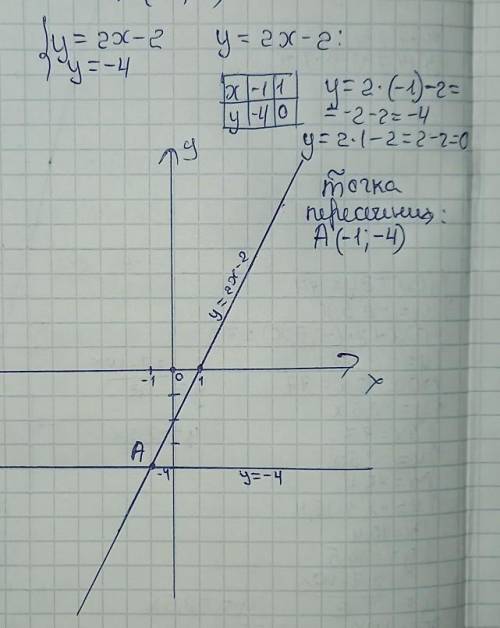 y = 2x - 2
y = -4
y = 2x - 2:
x | -1 | 1
y | -4 | 0
y = 2 · (-1) - 2 =
= -2 - 2 = -4
y = 2 · 1 - 2 = 2 - 2 = 0
Точка
пересечения:
A (-1; -4)
y
y = 2x - 2
-1
0
1
x
A
-4
y = -4